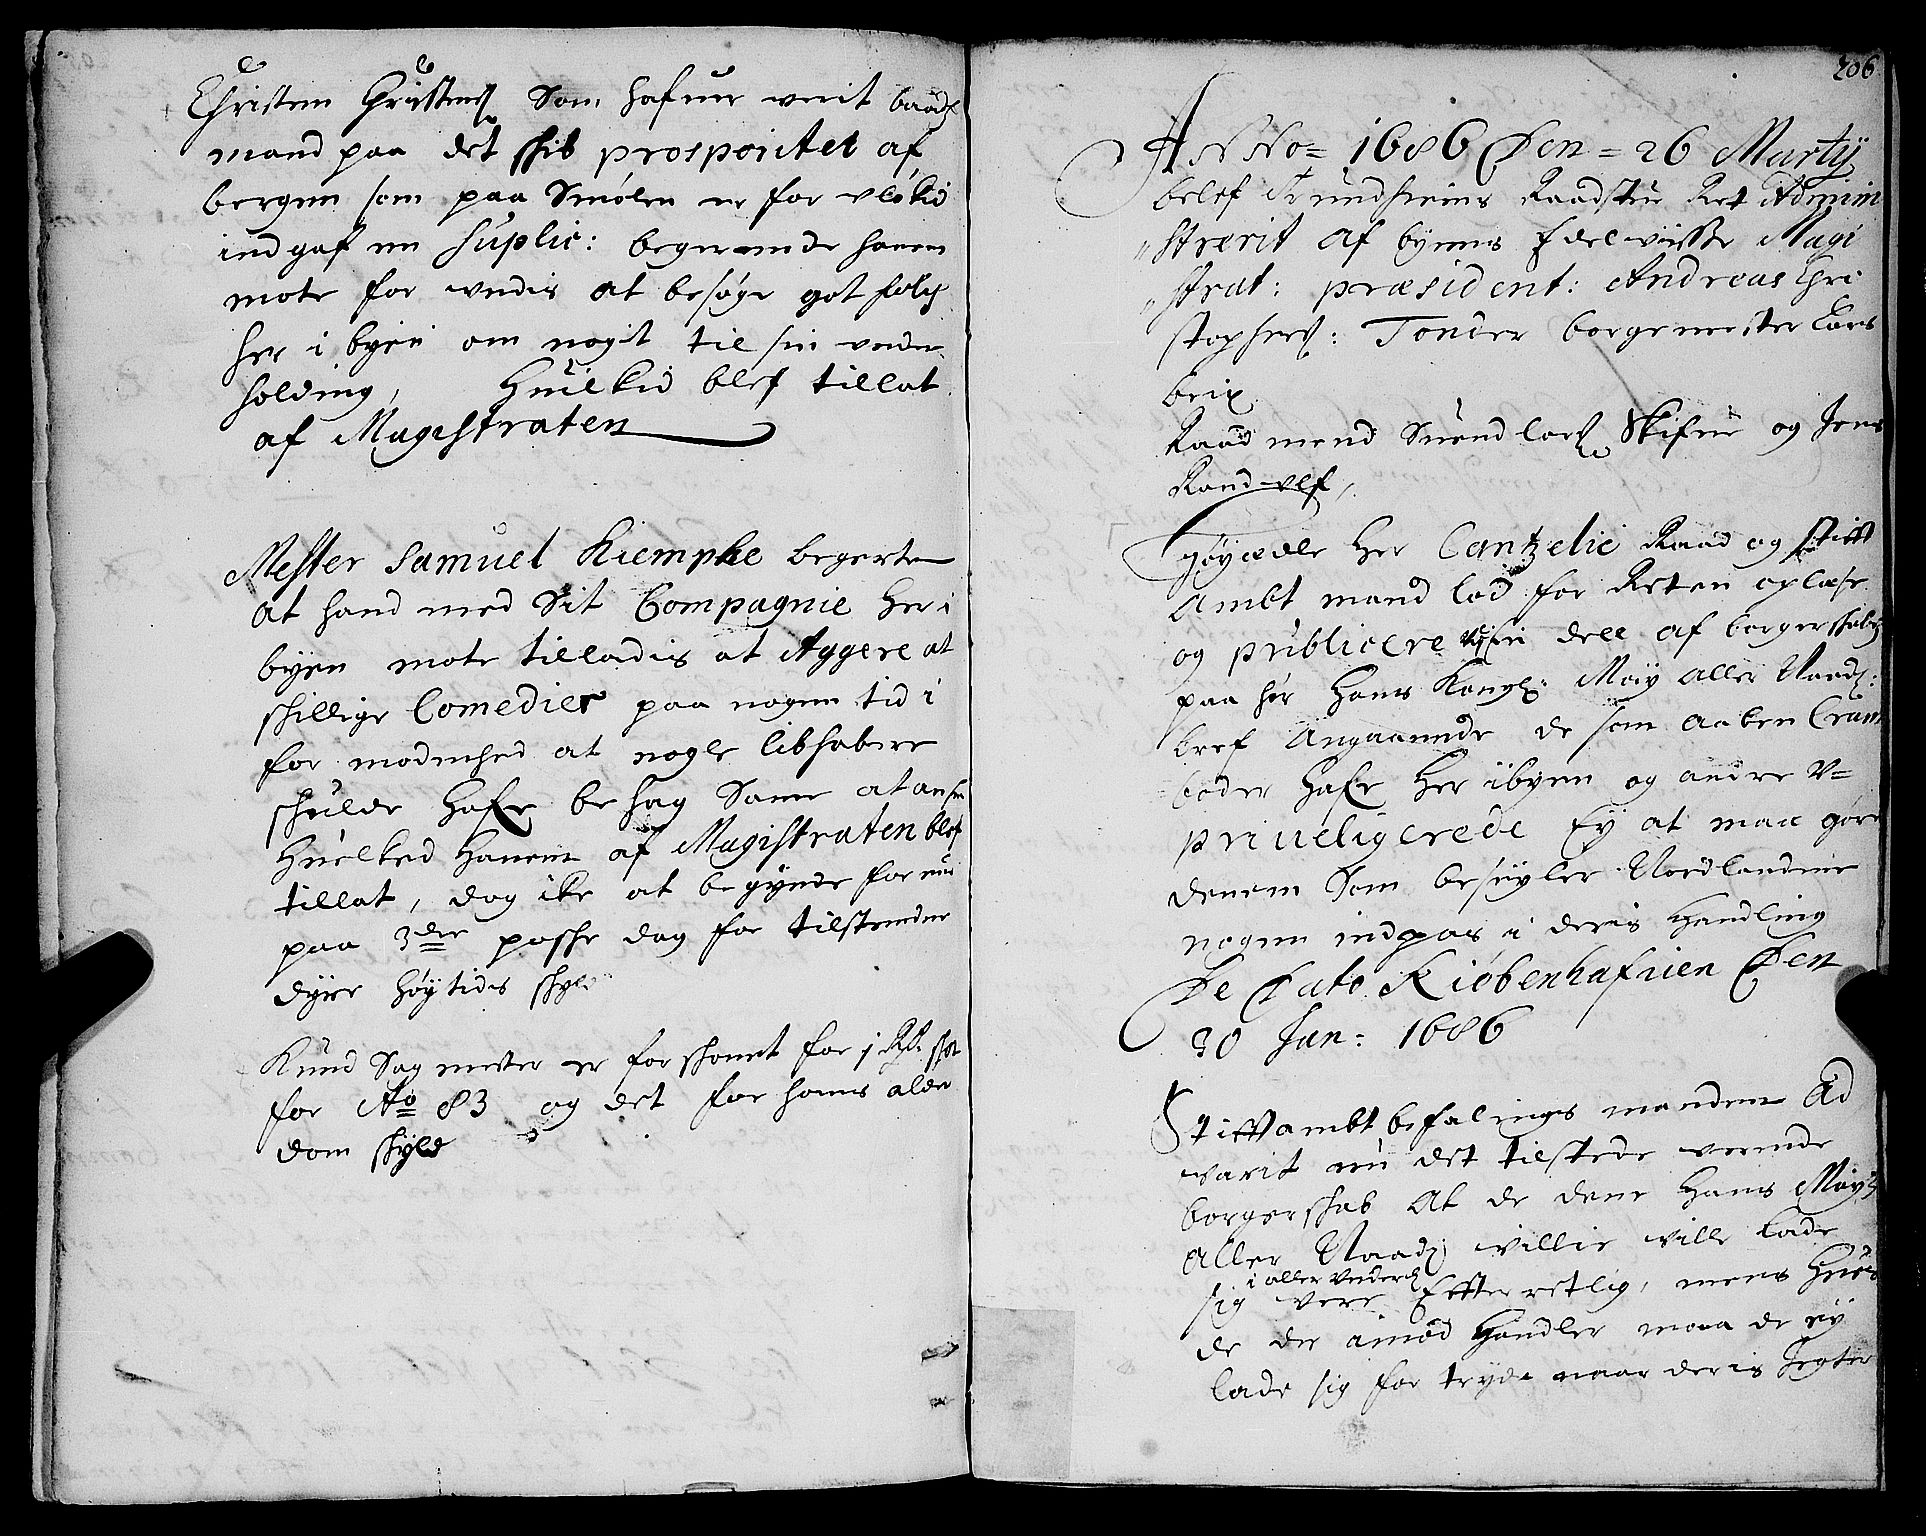 Christen Christens: Som hafuer verit baads
mand paa det skib prosporitet af
bergen som paa Smølen er for vløkid
indgaf en Suplic: begierende hanem
mote for vndis at besøge got folch
her i byen om nogit til sin vnder
holding, Huilkid blef tillat
af Magistraten
Mester Samuel Kiempke begerte
at hand med Sit Compagnie her i
byen mote tilladis at Aggere at
skillige Comedier paa nogen tid i
for modenhed at nogle libhabere
skulde Hafe behag Same at ansee
Huelked Hanem af Magistraten blef
tillat, dog ike at begynde for end
paa 3die paaske dag for tilstundene
dyre høytids skyld
Knud Sagmester er for skonet for 1 Rdr skat
for Ao 83 og det for hans alder
dom skyld
206
ANNo= 1686 Den = 26 Martij
blef Trundhiems Raadstue Ret Admini
strerit af byens Edelviisse Magi
strat: præsident: Andreas Chri
stophers: Tonder borgemester Lars
brix
Raad mend Suend Lars: Skifue og Jens
Randvlf,
Høyædle Her Cantzelie Raad og Stift
Ambt mand lod for Reten oplæse
og publicere en deel af borgerskabet
paa hør Hans Kongl: May aller Naads:
bref Angaaende de som aaben Cram
boder Hafe Her i byen og andre v=
priueligerede Ey at maa gøre
denem Som besøyler Nordlandene
nogen indpas i deris Handling
De Dato Kiøbenhafuen Den
30 Jan: 1686
Stiftambtbefalings manden Ad
varit nu det tilstede verende
borgerskab At de dene Hans Mayts
Aller Naads villie ville lade
i aller vnderd:
sig vere Efterretlig, mens Huis
de der imod Handler maa de ey
lade sig for tryde naar deris Jegter